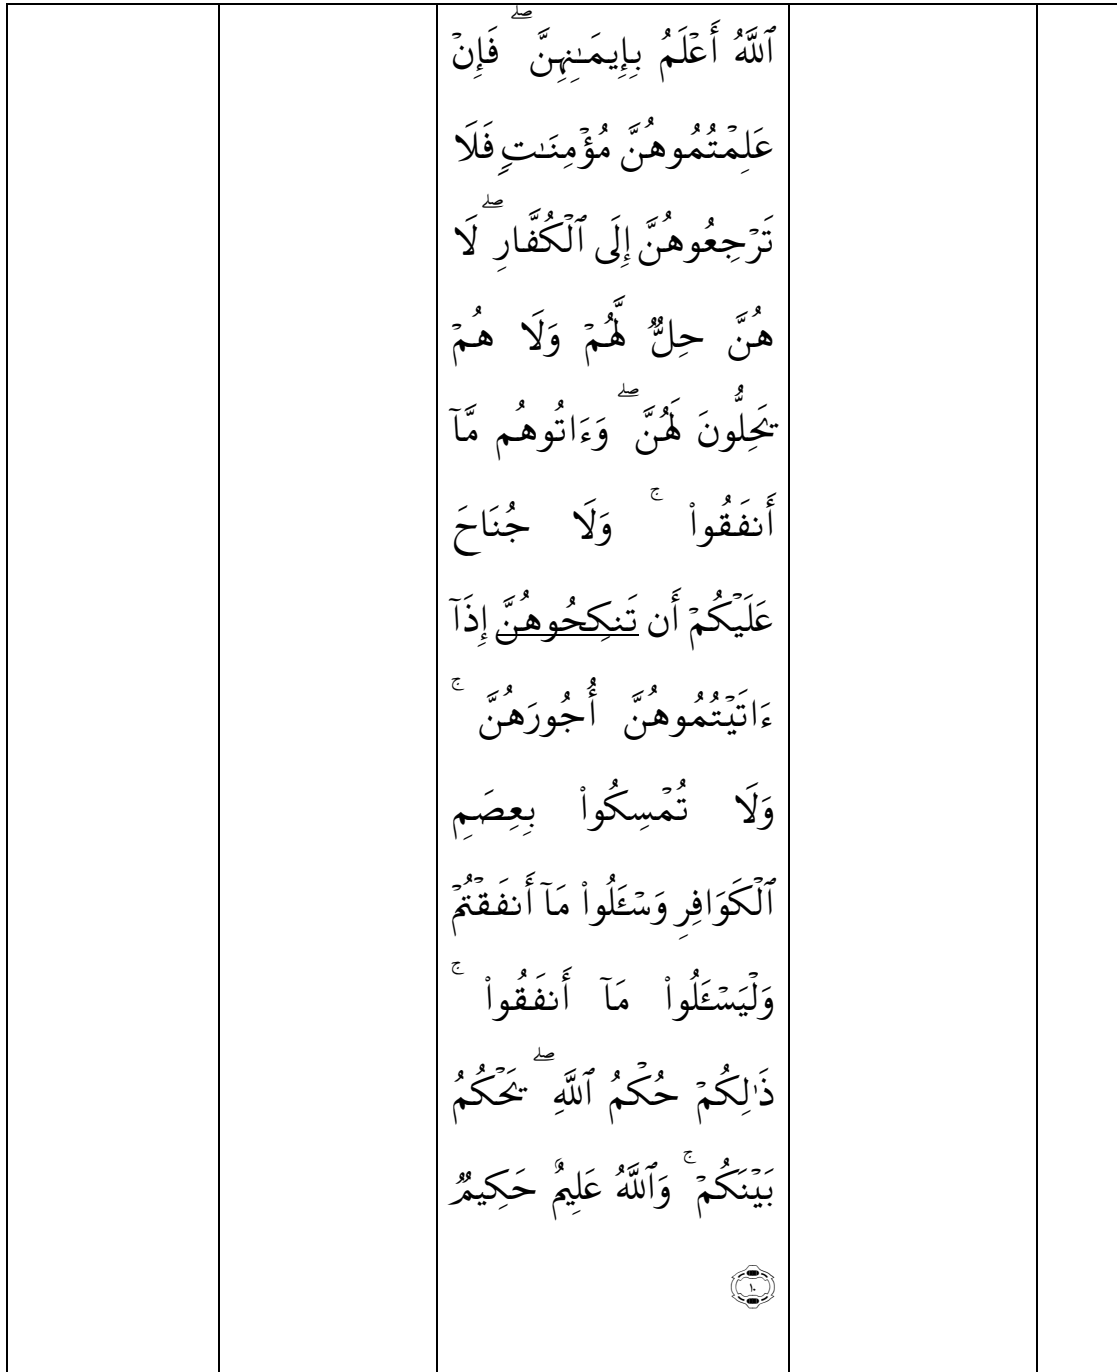 ٱللَّهُ أَعْلَمُ بِإِيمَـٰنِهِنَّ ۖ فَإِنْ
عَلِمْتُمُوهُنَّ مُؤْمِنَـٰتٍ فَلَا
تَرْجِعُوهُنَّ إِلَى ٱلْكُفَّارِ ۖ لَا
هُنَّ حِلٌّ لَّهُمْ وَلَا هُمْ
يَحِلُّونَ لَهُنَّ ۖ وَءَاتُوهُم مَّآ
أَنفَقُوا۟ ۚ وَلَا جُنَاحَ
عَلَيْكُمْ أَن تَنكِحُوهُنَّ إِذَآ
ءَاتَيْتُمُوهُنَّ أُجُورَهُنَّ ۚ
وَلَا تُمْسِكُوا۟ بِعِصَمِ
ٱلْكَوَافِرِ وَسْـَٔلُوا۟ مَآ أَنفَقْتُمْ
وَلْيَسْـَٔلُوا۟ مَآ أَنفَقُوا۟ ۚ
ذَٰلِكُمْ حُكْمُ ٱللَّهِ ۖ يَحْكُمُ
بَيْنَكُمْ ۚ وَٱللَّهُ عَلِيمٌ حَكِيمٌ
۝١٠